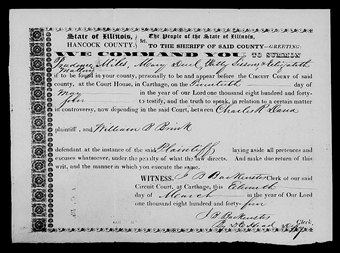 State of Illinois, The People of the State of Illinois,
HANCOCK COUNTY, } sct. TO THE SHERIFF OF SAID COUNTY—GREETING:
WE COMMAND YOU TO SUMMON
Prudence Miles, Mary Duel, Sally & Elizabeth
if to be found in your county, personally to be and appear before the CIRCUIT COURT of said
county, at the Court House, in Carthage, on the Twentieth day of
May in the year of our Lord one thousand eight hundred and forty-
to testify, and the truth to speak, in relation to a certain matter
in controversy, now depending in the said Court, between Charles R Dana
plaintiff, and William B Brink
defendant at the instance of the said Plaintiff laying aside all pretences and
excuses whatsoever, under the penalty of what the law directs. And make due return of this
writ, and the manner in which you execute the same.
WITNESS, J B Backenstos Clerk of our said
Circuit Court, at Carthage, this Eleventh
day of March in the year of Our Lord
one thousand eight hundred and forty- four
J B Backenstos
Clerk
By D E Head